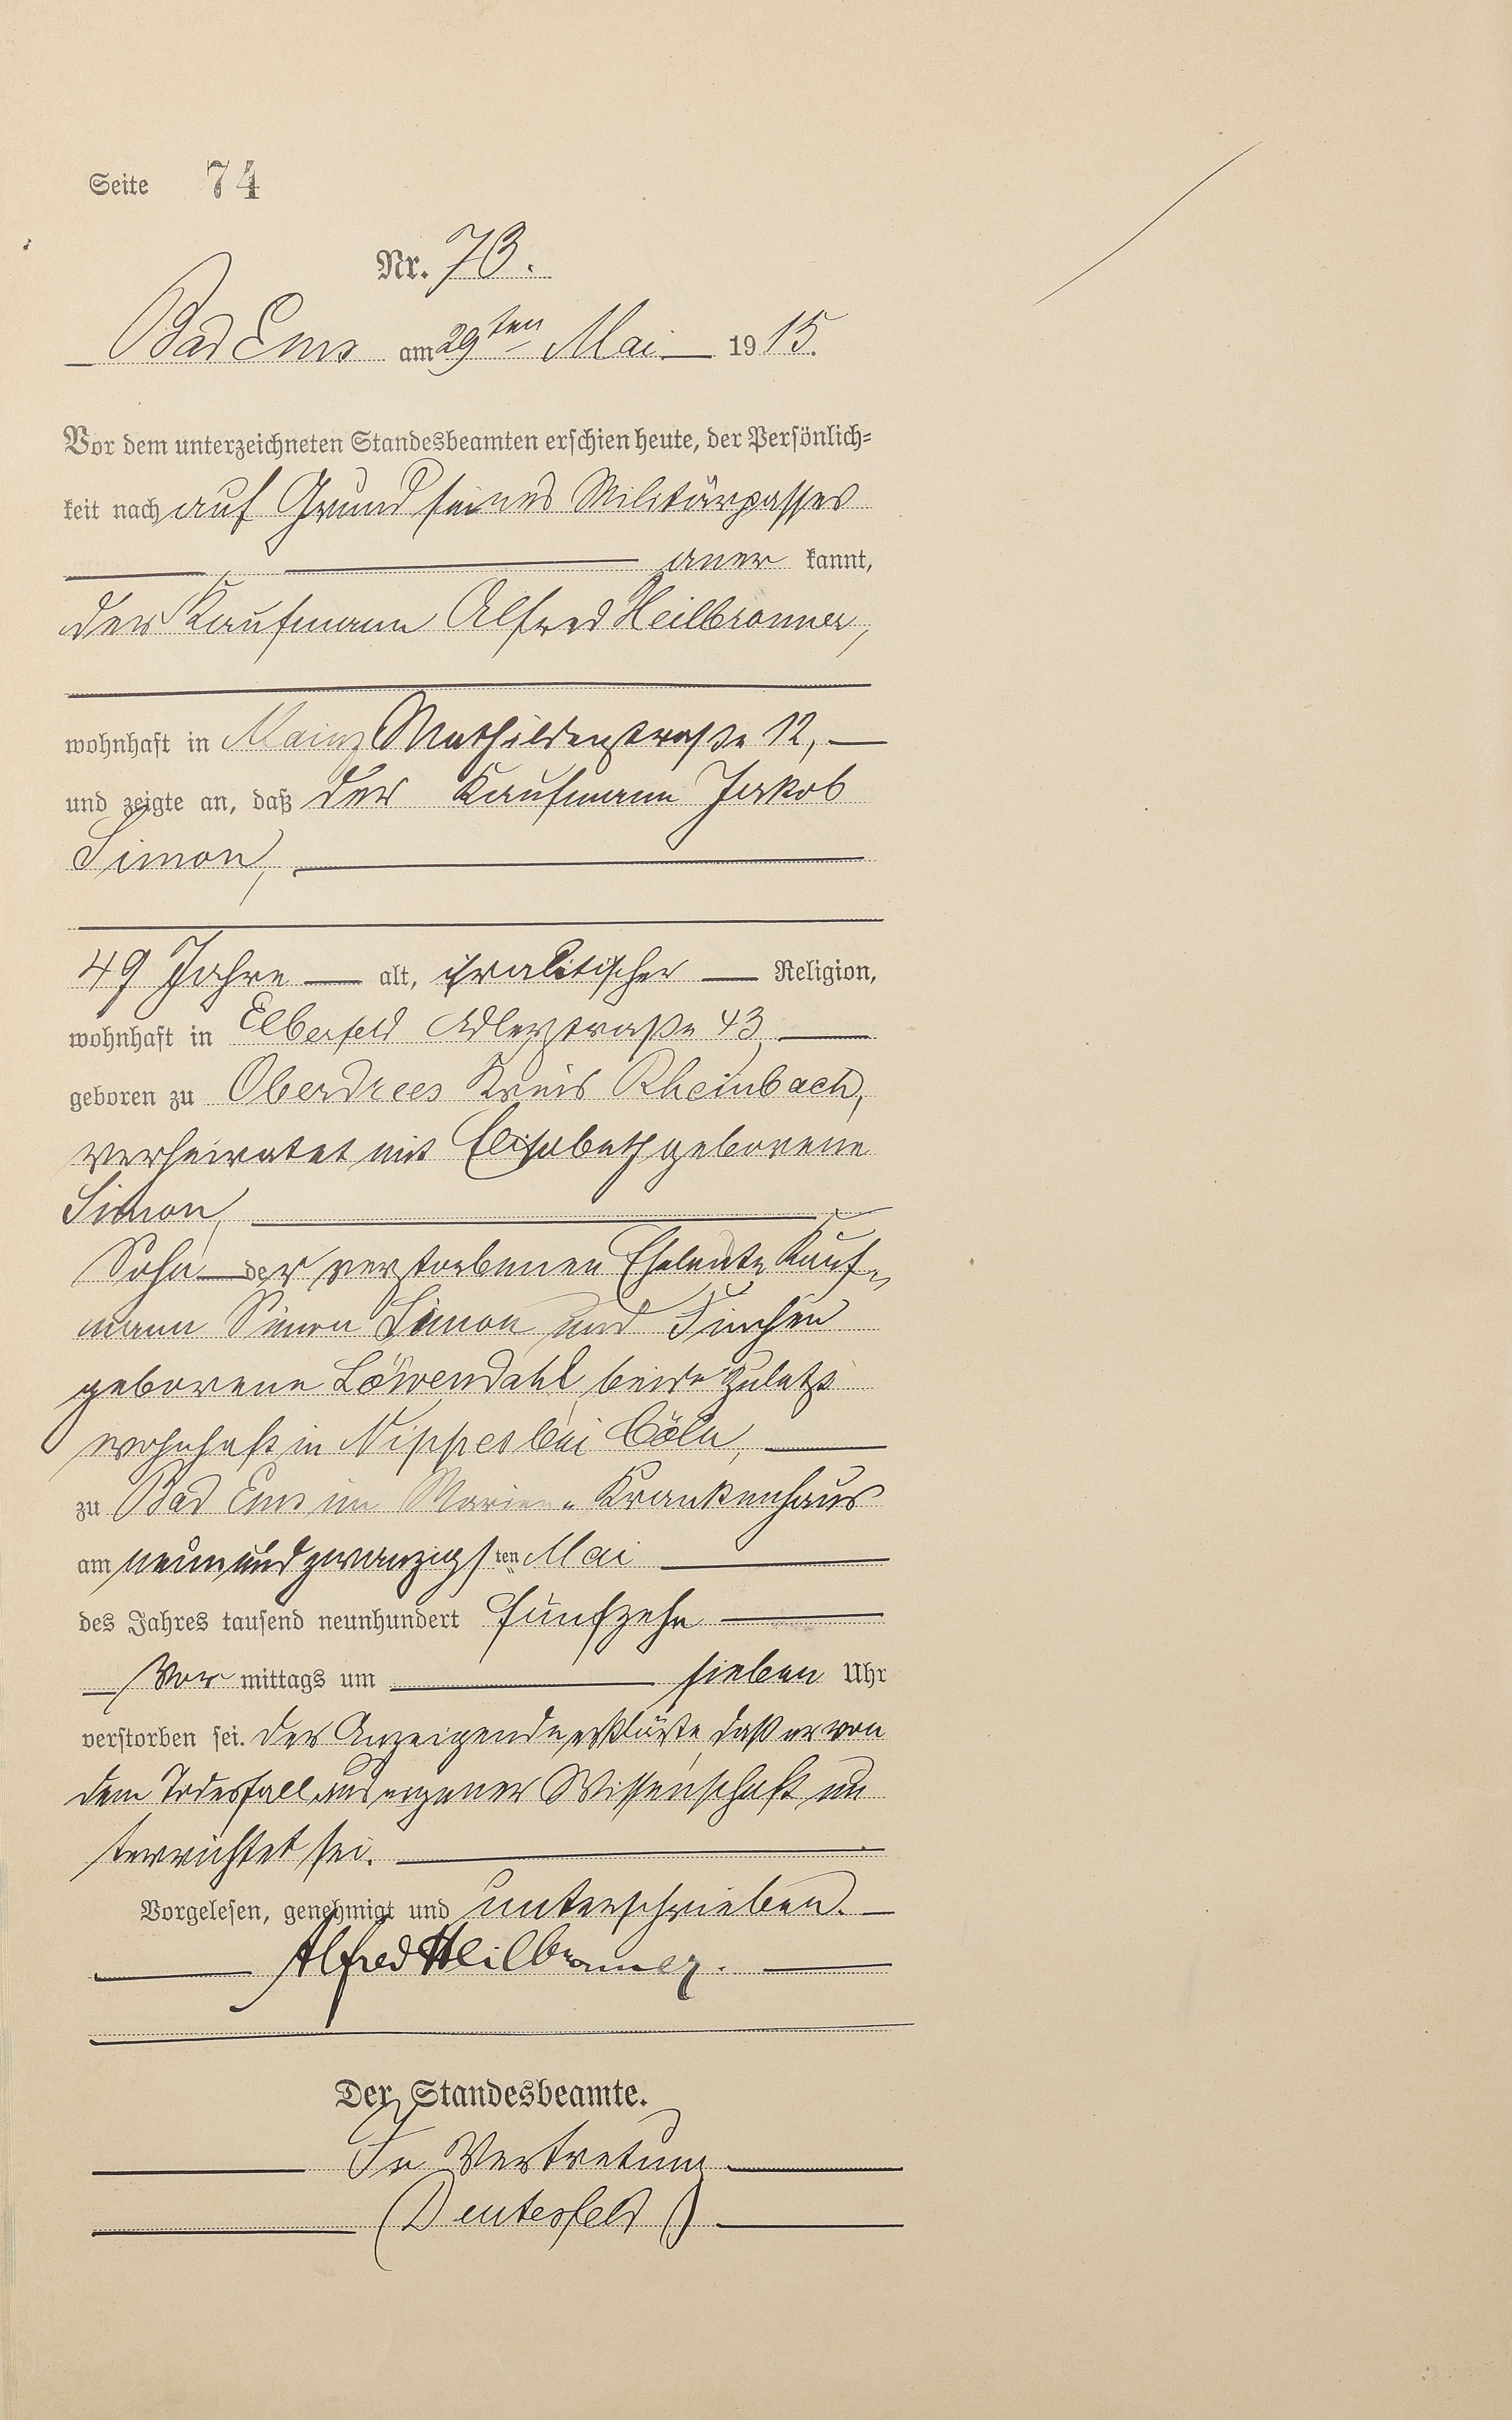 Seite 74
Nr. 73.
Bad Ems am 29ten Mai 1915.
Vor dem unterzeichneten Standesbeamten erschien heute, der Persönlich-
keit nach auf Grund seines Militärpasses
aner kannt,
der Kaufmann Alfred Heilbronner,
wohnhaft in Mainz Mathildenstraße 12,
und zeigte an, daß der Kaufmann Jakob
Simon,
49 Jahre alt, israelitischer Religion,
wohnhaft in Elberfeld Adlerstraße 43,
geboren zu Oberdrees Kreis Rheinbach,
verheiratet mit Elisabeth geborene
Simon,
Sohn der verstorbenen Eheleute Kauf-
mann Simon Simon und
geborene Löwendahl, beide zuletzt
wohnhaft in Nippes bei Cöln,
zu Bad Ems im Marien-Krankenhaus
am neunundzwanzigsten Mai
des Jahres tausend neunhundert fünfzehn
Vor mittags um sieben Uhr
verstorben sei. Der Anzeigende erklärte, daß er von
dem Todesfall aus eigener Wissenschaft un
terrichtet sei.
Vorgelesen, genehmigt und unterschrieben.
Alfred Heilbronner.
Der Standesbeamte.
In Vertretung
(Deutesfeld)